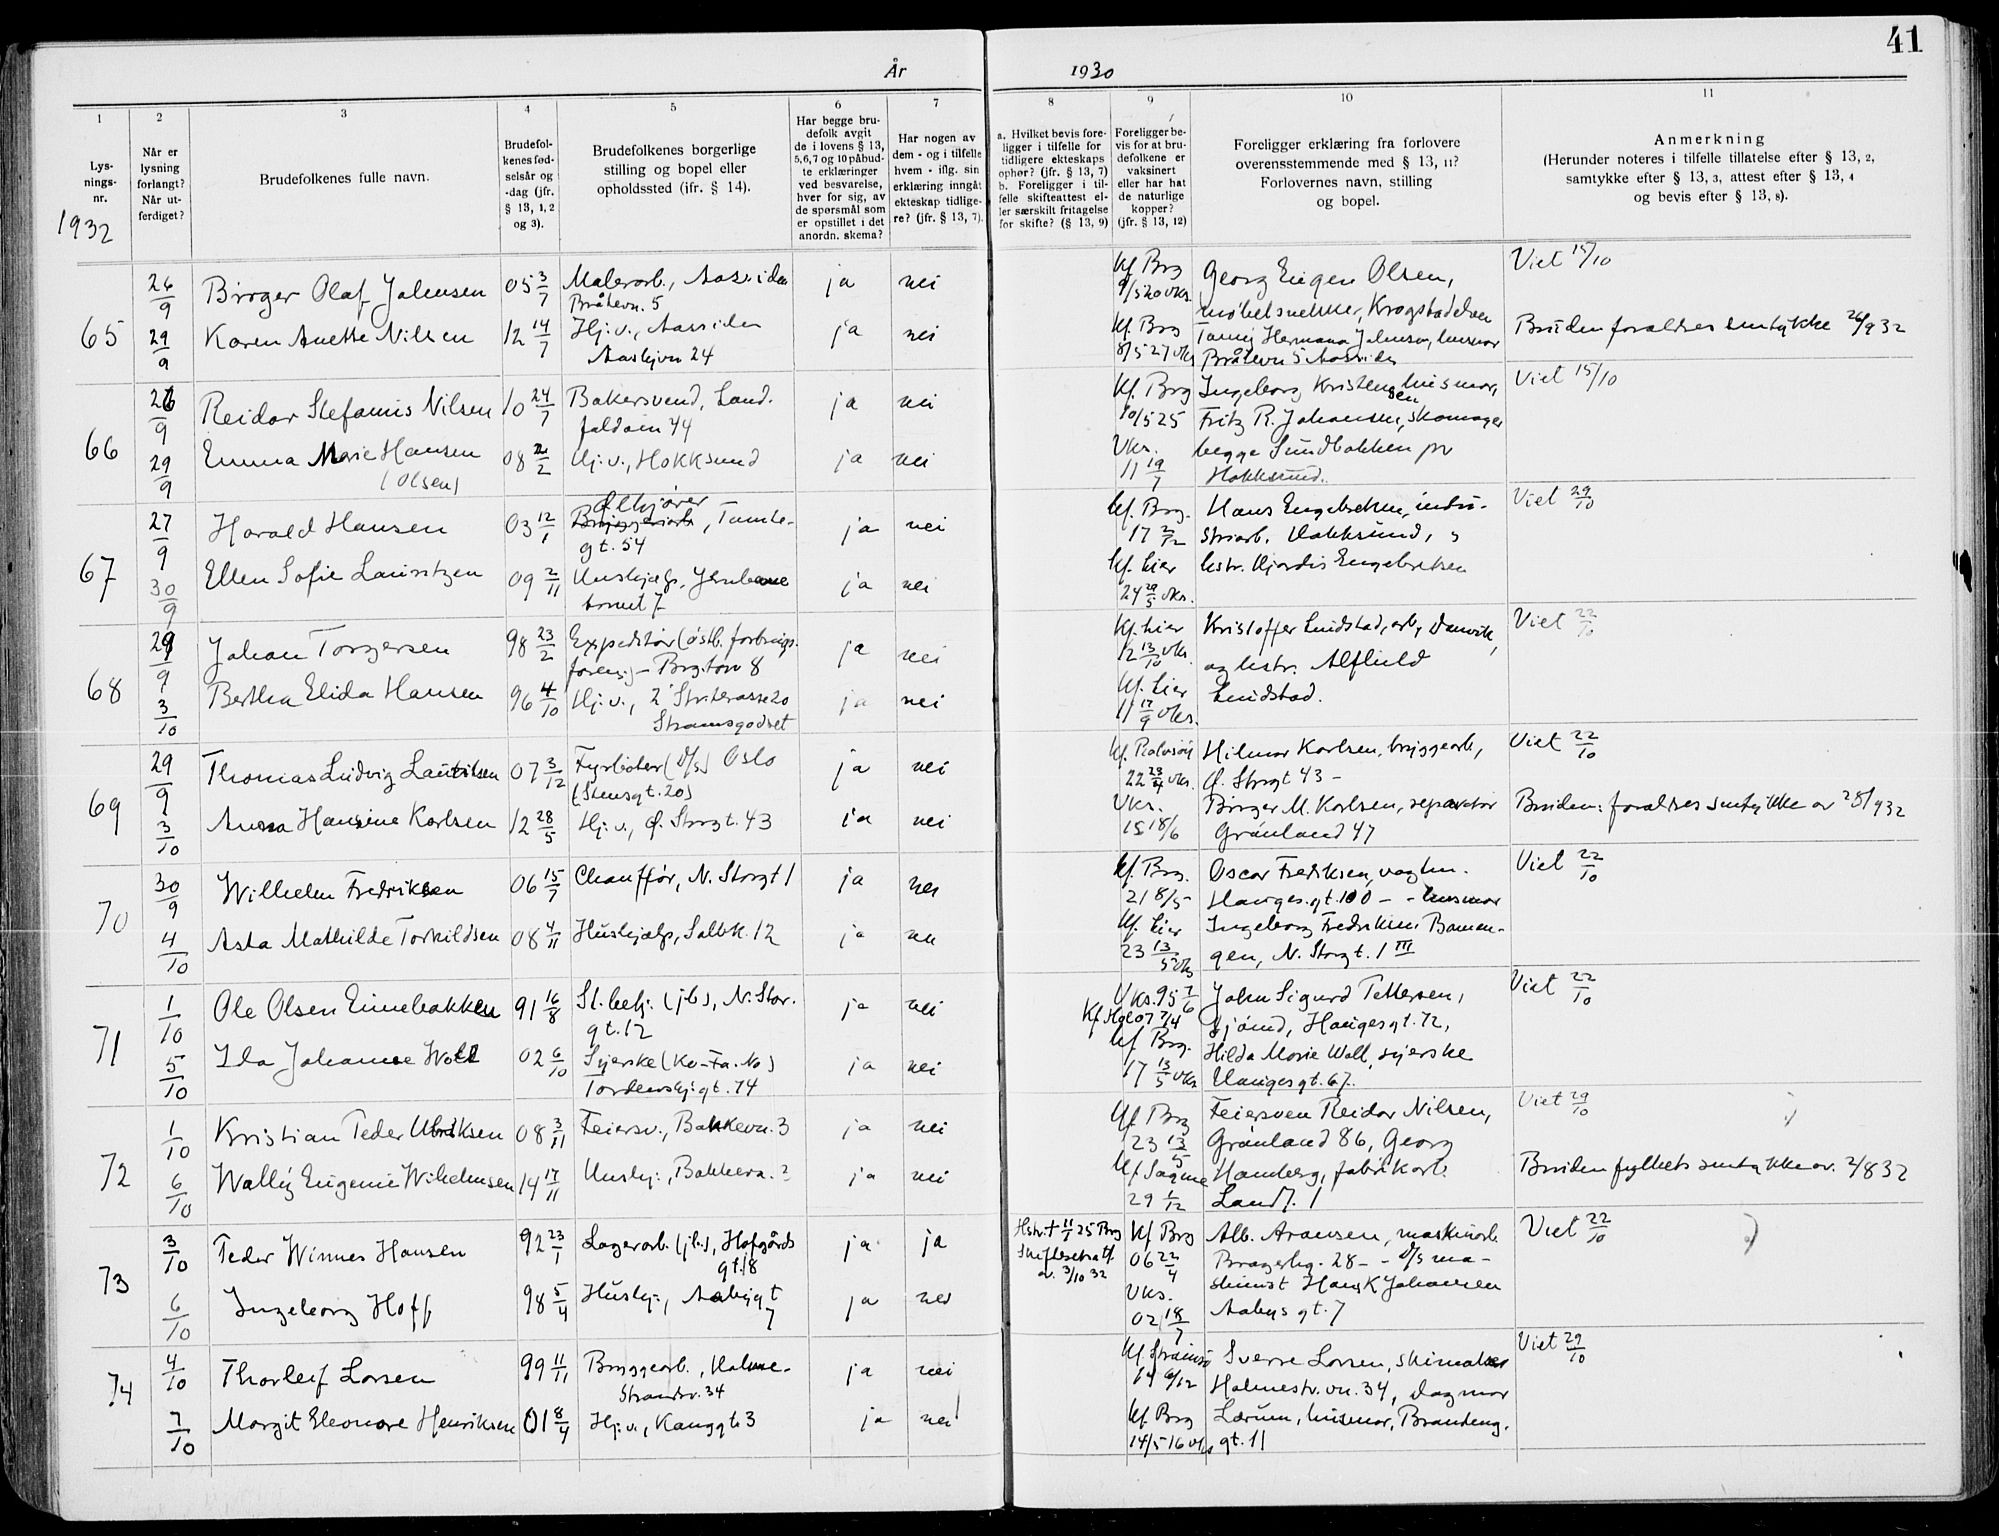 41
År 1930
1 2 3 4 5 6 7 8 9 10 11
Lys-
nings-
nr.
1932
Når er
lysning
forlangt?
Når ut-
ferdiget?
Brudefolkenes fulle navn.
Brudefol-
kenes fød-
selsår og
-dag (jfr.
§ 13, 1, 2
og 3).
Brudefolkenes borgerlige
stilling og bopel eller
opholdssted (jfr. § 14).
Har begge bru-
defolk avgit
de i lovens § 13,
5,6,7 og 10 påbud-
te erklæringer
ved besvarelse,
hver for sig, av
de spørsmål som
er opstillet i det
anordn. skema?
Har nogen av
dem - og i tilfelle
hvem - iflg. sin
erklæring inngåt
ekteskap tidlige-
re? (jfr. § 13, 7).
a. Hvilket bevis fore-
ligger i tilfelle for
tidligere ekteskaps
ophør? (jfr. § 13, 7)
b. Foreligger i til-
felle skifteattest el-
ler særskilt fritagelse
for skifte? (§ 13, 9)
Foreligger be-
vis for at bru-
defolkene er
vaksinert
eller har hat
de naturlige
kopper?
(jfr. § 13, 12)
Foreligger erklæring fra forlovere
overensstemmende med § 13, 11?
Forlovernes navn, stilling
og bopel.
Anmerkning
(Herunder noteres i tilfelle tillatelse efter § 13, 2,
samtykke efter § 13, 3, attest efter § 13, 4
og bevis efter § 13, 8).
65
26/9 Birger Olaf Johnsen 05 3/7 Malerarb., Aassiden
Bråtevn. 5
ja nei
Kf Brg
9/5 20 vks.
Georg Eugen Olsen,
møbelsnekker, Krogstadelven
Viet 15/10
29/9 Karen Anette Nilsen 12 14/7 Hj.v., Aassiden
Aaskjvn 24
ja nei
Kf. Brg
8/5 27 vks
Hermana Johnsen, husmor
Bråtevn 5 Aassiden
Bruden foraldres samtykke 26/9 32
66
26/9 Reidar Stefanus Nilsen 10 24/7 Bakersvend, Land-
faldøien 44
ja nei
Kf. Brg
10/5 25
Ingeborg Kristensen husmor,
Fritz R. Johansen, skomager
Viet 15/10
29/9 Emma Marie Hansen
(Olsen)
08 2/2 Hj.v., Hokksund
ja nei
Vks.
11 19/7
begge Sundbakken pr
Hokksund.
67
27/9 Harald Hansen 03 12/1 Ølkjører, Tomte-
gt. 54
ja nei
Kf. Brg.
17 2/12
Hans Engebretsen, indu-
striarb. Hokksund,
Viet 29/10
30/9 Ellen Sofie Lauritzen 09 2/11 Hushjælp, Jernbane
tomt 7
ja nei
Kf. Lier
24 29/5 vks.
hstr. Hjordis Engebretsen
68
29/9 Johan Torgersen 98 23/2 Expeditør (østl. forbrugs.
foren.) - Brg.torv 8
ja nei
Kf. Lier
12 13/10 vks.
Kristoffer Lindstad, arb, Danvik,
og hstr. Alfhild
Viet 22/10
3/10 Bertha Elida Hansen 96 4/10 Hj.v., 2 Strterasse 20
Strømsgodset
ja nei
Kf. Lier
11 17/9 vks.
Lindstad.
69
29/9 Thomas Ludvig Lauritsen 07 3/12 Fyrbøter (D/S) Oslo
(Stensgt. 20)
ja nei
Kf. Rolvsøy
22 23/4 vks.
Hilmar Karlsen, bryggearb,
Ø. Storgt 43 -
Viet 22/10
3/10 Anna Hansine Karlsen 12 28/5 Hj.v., Ø. Storgt. 43
ja nei
Vks.
15 18/6
Birger M. Karlsen, reparatør
Grønland 47
Bruden: foraldres samtykke av 28/9 32
70
30/9 Wilhelm Fredriksen 06 15/7 Chauffør, N. Storgt 1
ja nei
Kf. Brg.
21 8/5
Oscar Fredriksen, vogtm.
Hauges.gt. 100 - - husmor
Viet 22/10
4/10 Asta Mathilde Torkildsen 08 4/11 Hushjælp, Solbk. 12
ja nei
Kf. Lier
23 13/5 vks
Ingeborg Fredriksen
N. Storgt. 1 III
71
1/10 Ole Olsen Einebakken 91 16/8 St.betj. (jb), N. Stor.
gt. 12
ja nei
Vks. 95 7/6
John Sigurd Pettersen,
sjømd, Hauges gt. 72,
Viet 22/10
5/10 Ida Johanne Woll 02 6/10 Syerske (Ko-Fa. No)
Tordenskj.gt. 74
ja nei
Kf. Brg.
17 13/5 vks
Hilda Marie Woll, syerske
Haugesgt. 67.
72
1/10 Kristian Peder Ulriksen 08 3/11 Feiersv., Bakkevn. 3
ja nei
Kf. Brg
23 13/5
Feiersven Reidar Nilsen,
Grønland 86, Georg
Viet 29/10
6/10 Wally Eugenie Wilhelmsen 14 17/11 Hushj., Bakkevn. 2
ja nei
Kf. Sagene
29 1/12
Hamberg, fabrikarb.
Landf. 1
Bruden fylkets samtykke av. 2/8 32
73
3/10 Peder Winnes Hansen 92 23/1 Lagerarb. (jb.), Hofgårds
gt. 18
ja ja
Hstr. † 11/1 25 Brg
Skifteretsatt.
av. 3/10 32
Kf Brg
06 22/4
Alb. Aronsen, maskinarb.
Bragerhg. 28 - - D/S ma-
Viet 22/10
6/10 Ingeborg Hoff 98 5/4 Hushj., Aabygt
7
ja nei
Vks.
02 18/7
skinist Hans K Johansen
Aabys gt. 7
74
4/10 Thorleif Larsen 99 11/11 Bryggearb., Holme-
strandsv. 34
ja nei
Kf. Strømsø
14 6/12
Sverre Larsen, skimaker
Holmestr.vn. 34, Dagmar
Viet 29/10
7/10 Margit Eleonore Henriksen 01 8/4 Hj.v., Kauggt. 3
ja nei
Kf. Brg
14/5 16 vks
Lærum, husmor, Brandeng.
gt. 11